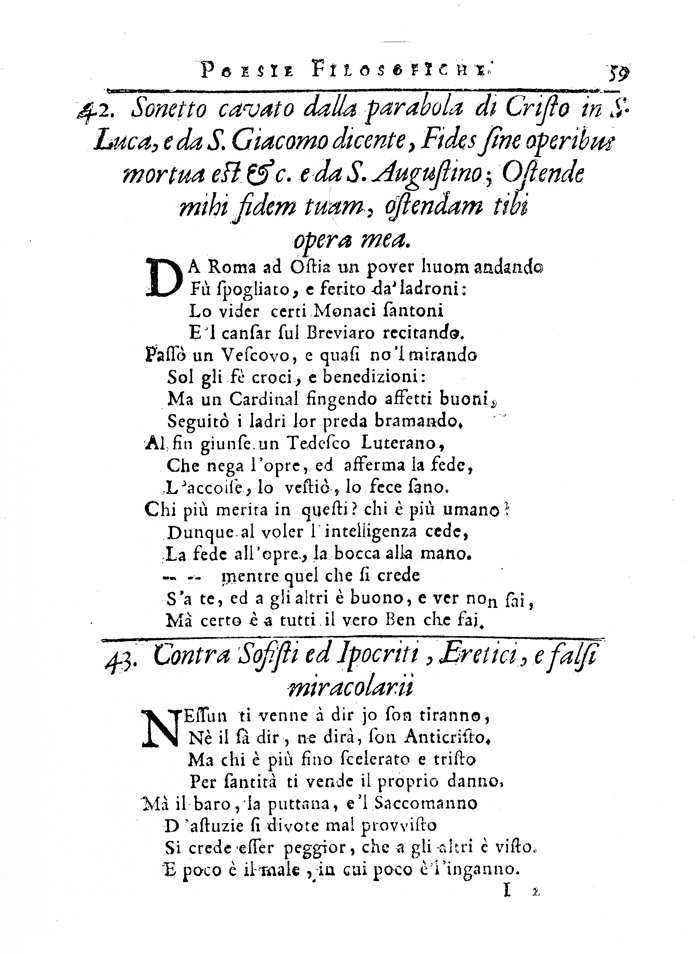 POESIE FILOSOFICHE. 59
42. Sonetto cavato dalla parabola di Criſto in S.
Luca, e da S. Giacomo dicente, Fides ſine operibus
mortua eſt & c. e da S. Auguſtino; Oſtende
mihi fidem tuam, oſtendam tibi
opera mea.
DA Roma ad Oſtia un pover huom andando
Fù ſpogliato, e ferito da' ladroni:
Lo vider certi Monaci ſantoni
E 'l canſar ſul Breviaro recitando.
Paſſò un Veſcovo, e quaſi no 'l mirando
Sol gli fè croci, e benedizioni:
Ma un Cardinal fingendo affetti buoni,
Seguitò i ladri lor preda bramando.
Al fin giunſe un Tedeſco Luterano,
Che nega l'opre, ed afferma la fede,
L'accolſe, lo veſtiò, lo fece ſano.
Chi più merita in queſti? chi è più umano?
Dunque al voler l'intelligenza cede,
La fede all'opre, la bocca alla mano.
-- -- mentre quel che ſi crede
S'a te, ed a gli altri è buono, e ver non ſai,
Mà certo è a tutti il vero Ben che fai.
43. Contra Sofiſti ed Ipocriti, Eretici, e falſi
miracolarii
NEſſun ti venne à dir jo ſon tiranno,
Nè il ſà dir, ne dirà, ſon Anticriſto.
Ma chi è più fino ſcelerato e triſto
Per ſantità ti vende il proprio danno.
Mà il baro, la puttana, e'l Saccomanno
D'aſtuzie ſi divote mal provviſto
Si crede eſſer peggior, che a gli altri è viſto.
E poco è il male, in cui poco è l'inganno.
I 2